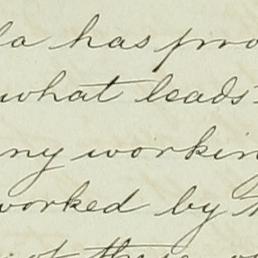 la has pro
what leads
ny workin
worked by
of these